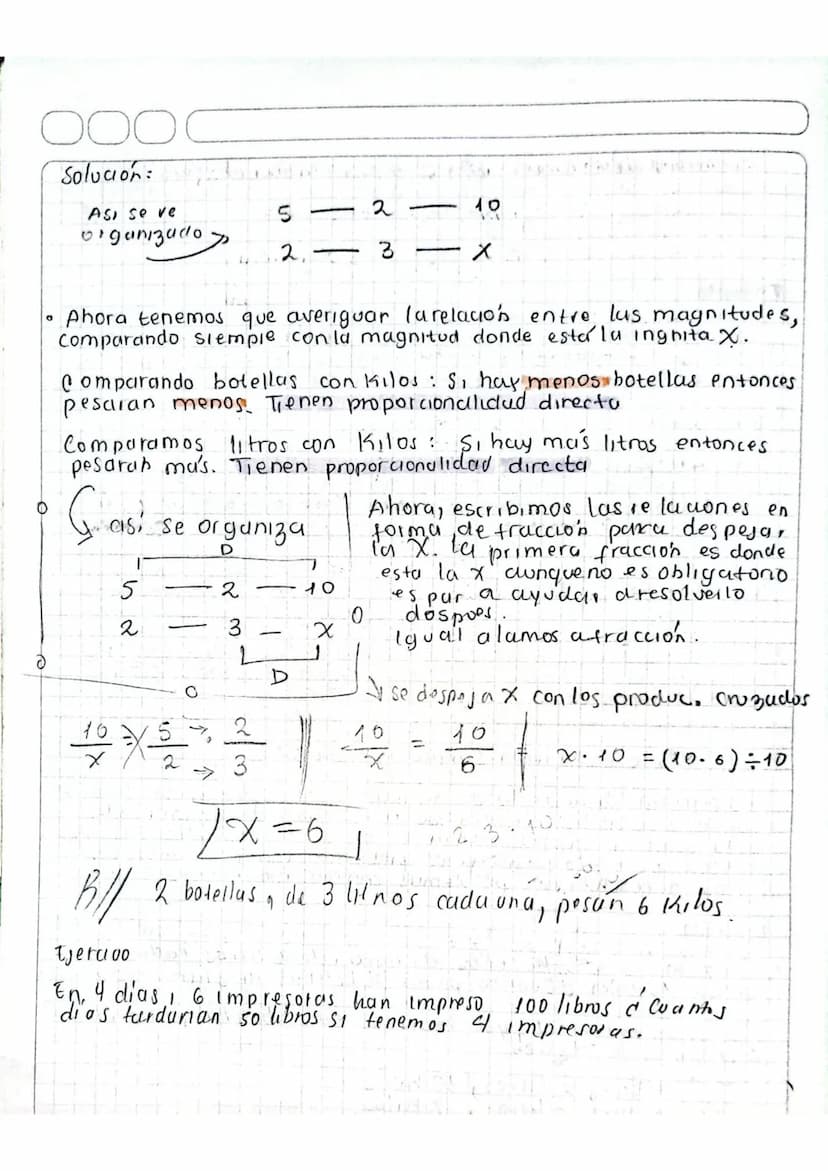 Solución:
Asi se ve
organizado
5 — 2 — 10
2 — 3 — x
• Ahora tenemos que averiguar la relación entre las magnitudes,
comparando siempre con la magnitud donde está la ingnita X.
Comparando botellas con Kilos: Si hay menos botellas entonces
pesaran menos. Tienen proporcionalidad directa
Comparamos litros con Kilos: Si hay más litros entonces
pesarah más. Tienen proporcionalidad directa
así se organiza
D
5 — 2 — 10
2 — 3 — x
D
Ahora, escribimos las relaciones en
forma de fracción para despejar
la X. La primera fracción es donde
esta la x aunque no es obligatorio
es para ayudar a resolverlo
dospues.
Igual alamos a fracción.
se despeja x con los produc. cruzados
10/x = 5/2 → 2/3
10/x = 10/6
x · 10 = (10 · 6) ÷ 10
x = 6
2 · 3 · 10
R// 2 botellas, de 3 litros cada una, pesan 6 Kilos.
Ejercicio
En 4 días, 6 impresoras han impreso 100 libros ¿Cuantos
días tardarian 50 libros si tenemos 4 impresoras.